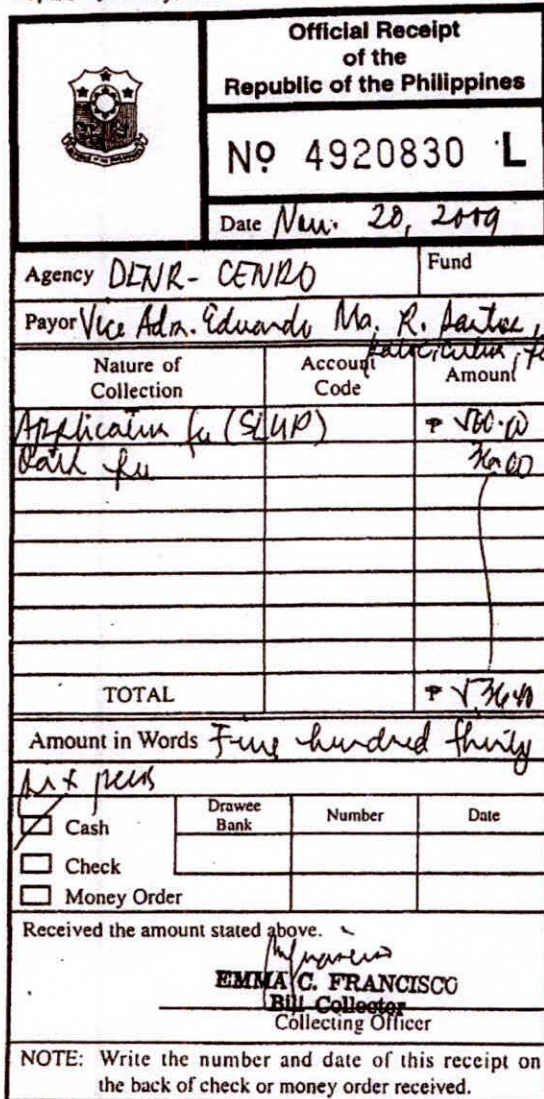 Official Receipt
of the
Republic of the Philippines
Nº 4920830 L
Date Nov. 20, 2009
Agency DENR-CENRO
Fund
Payor Vice Adm. Eduardo Ma. R. Santos,
Nature of Collection
Account Code
Amount
Application fee (SLUP) ₱ 500.00
Oath fee 36.00
TOTAL ₱ 536.00
Amount in Words Five hundred thirty
six pesos
Cash
Drawee Bank
Number
Date
Check
Money Order
Received the amount stated above.
EMMA C. FRANCISCO
Bill Collector
Collecting Officer
NOTE: Write the number and date of this receipt on
the back of check or money order received.